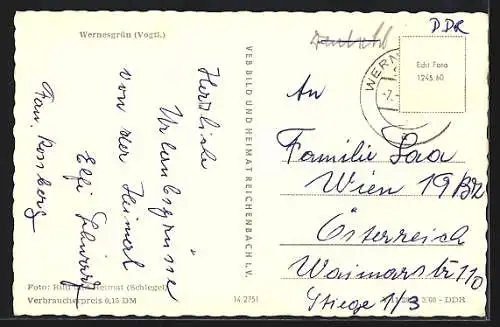 Wernesgrün (Vogtl.)
DDR
WERN
Echt Foto
1245 60
-7.
Herzliche
Urlaubsgrüsse
von der Heimat
Elfi
Fam.
VEB BILD UND HEIMAT REICHENBACH I. V.
An
Familie Saa
Wien 19 Bz
Österreich
110
Stiege 1/3
Foto: Bild und Heimat (Schlegel)
Verbraucherpreis 0,15 DM
14 2751
DDR